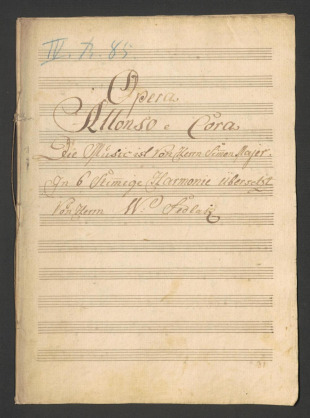 IV. h. 85
Opera
Alfonso e Cora
Die Music ist von Herrn Simon Majer.
In 6 Stimege Harmonie übersetzt
Von Herrn W. Sedlak